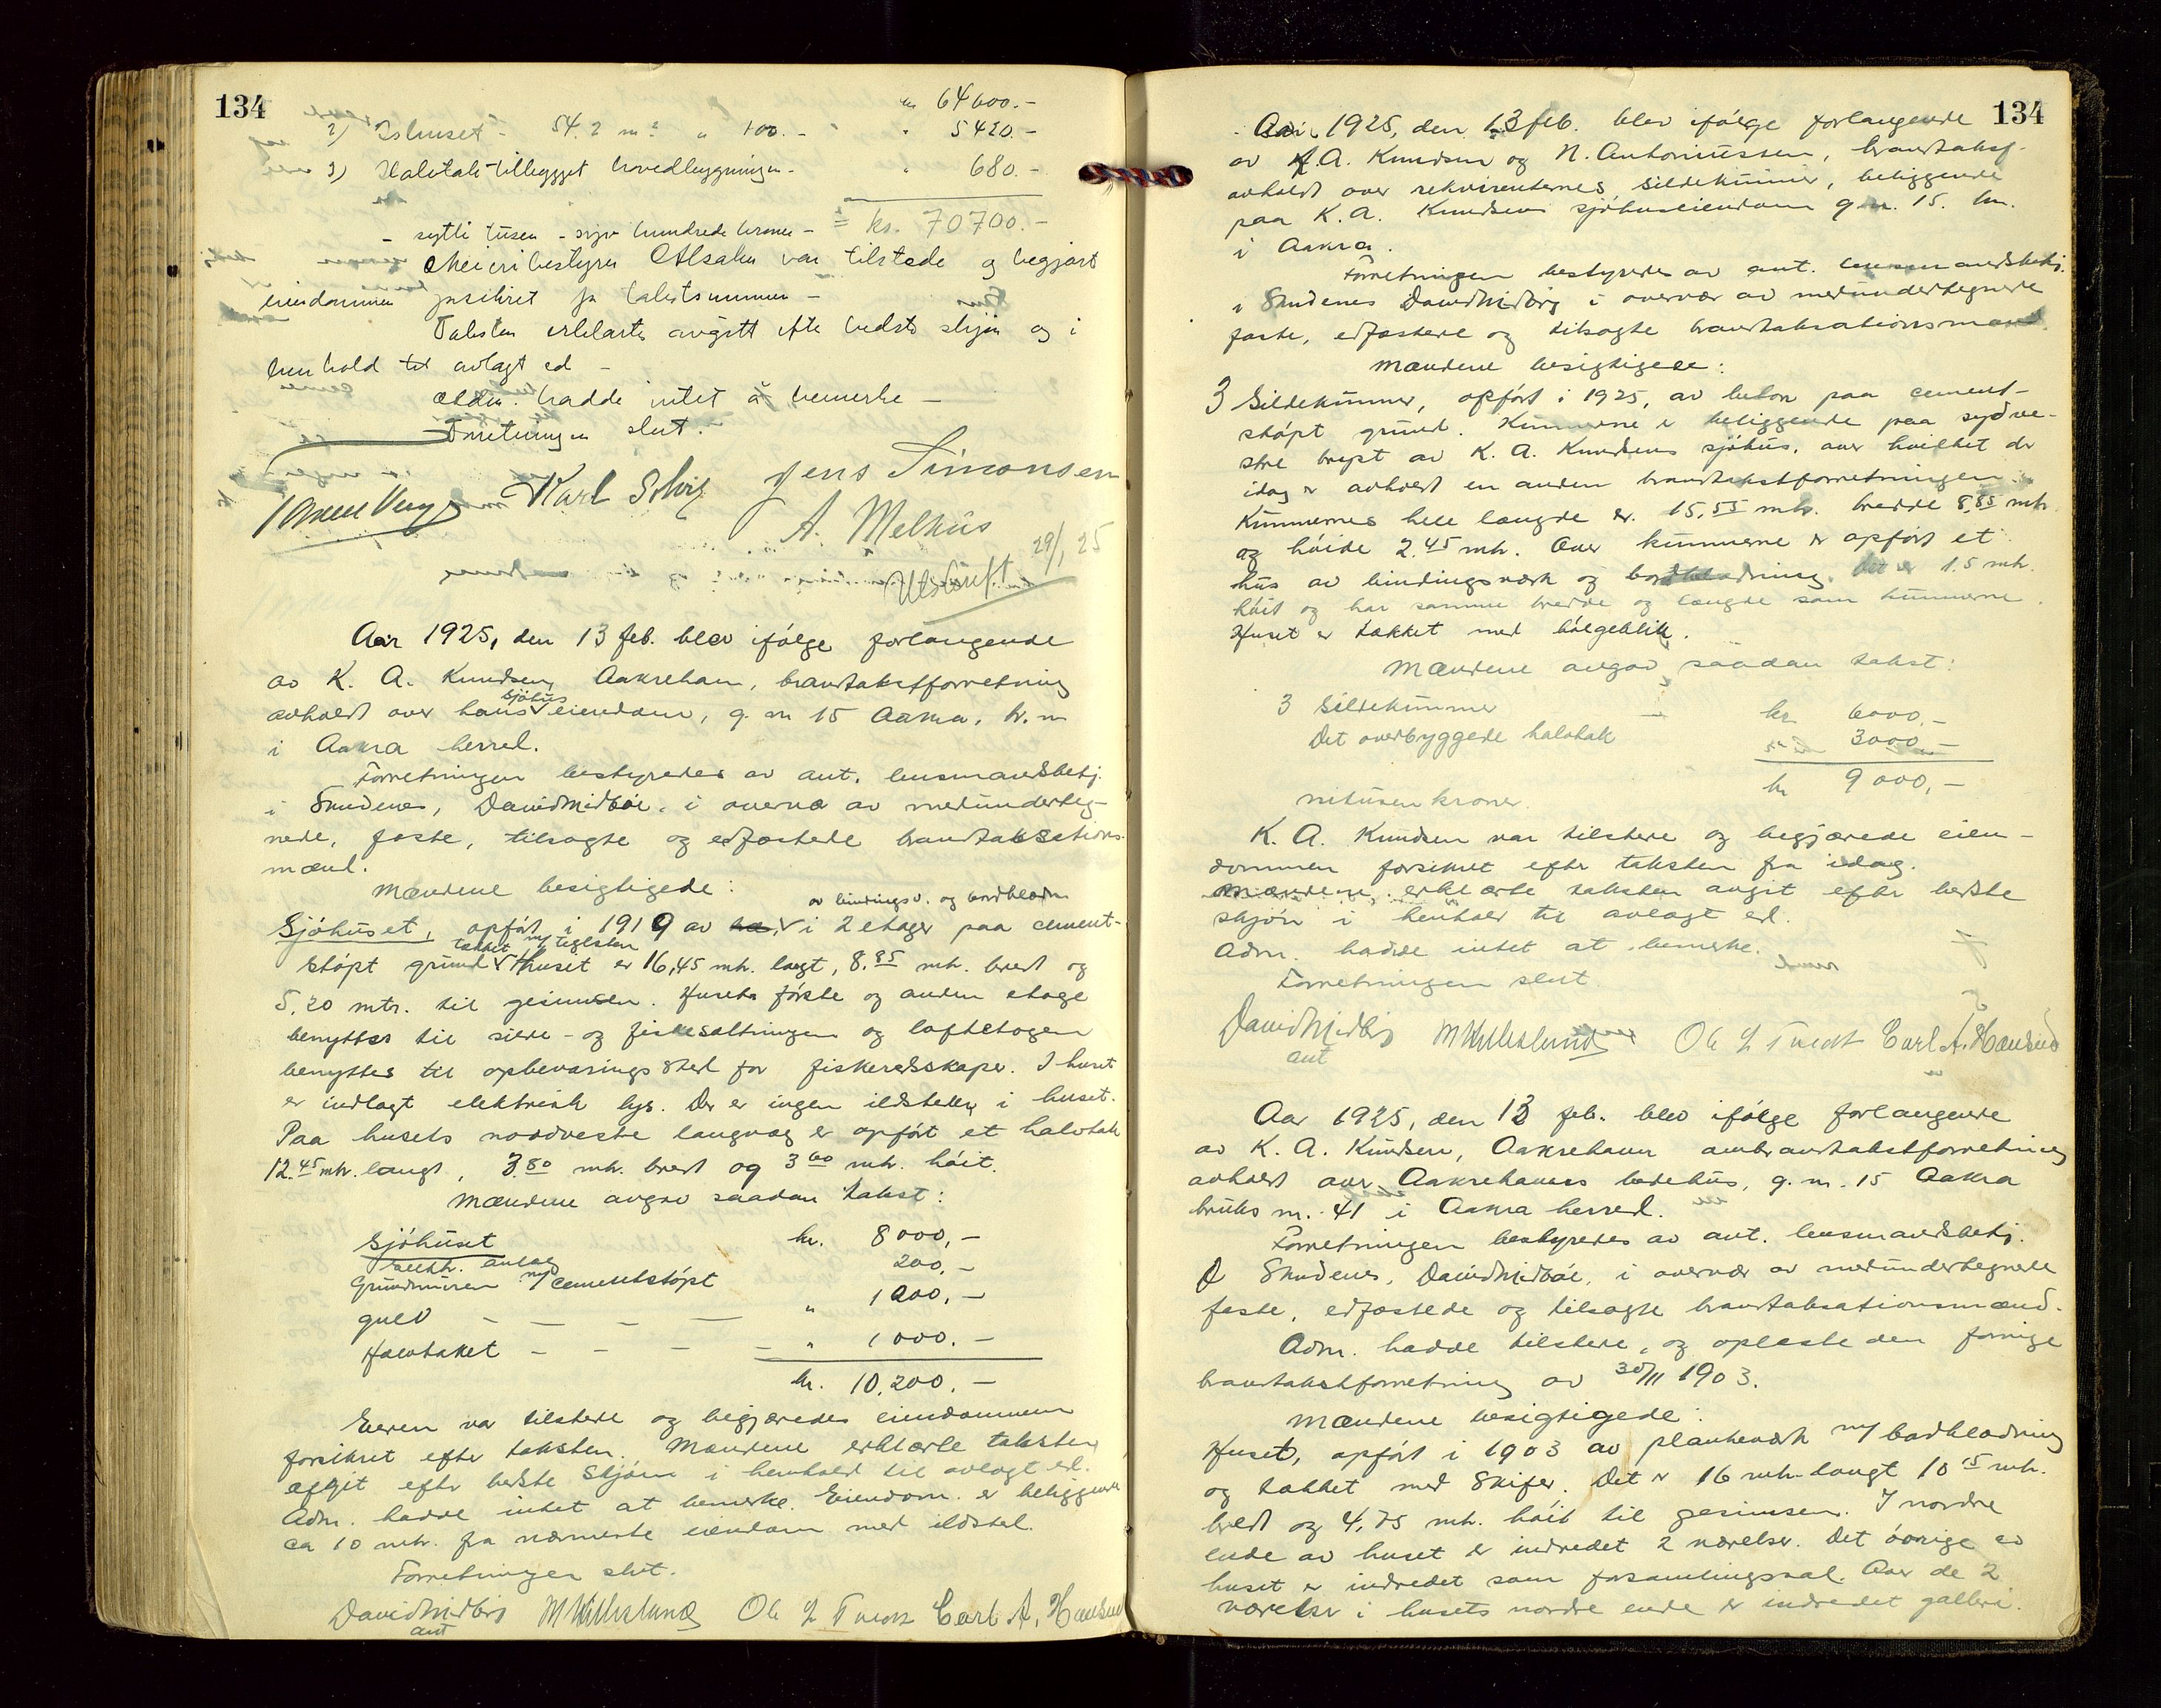 134
kr 64600.-
2) Ishuset - 54.2 m² " 100.- " 5420.-
3) Halvtak-tillegget hovedbygningen- " 680.-
- sytti tusen - syv hundrede kroner - = kr. 70700.-
Meieribestyrer var tilstede og begjært
eiendommen forsikret for takstsummen -
Taksten erklærtes avgitt efter bedste skjøn og i
henhold til avlagt ed -
Adm. hadde intet å bemerke -
Forretningen slut.
Karl Solvig Jens Simonsen
A. Melhüs
Utskrift 29/1 25
Aar 1925, den 13 feb. blev ifølge forlangende
av K. A. Knudsen, Aakrehavn, brandtakstforretning
avholdt over hans sjøhus eiendom, g. n 15 Aakra, br. n
i Aakra herred.
Forretningen bestyredes av ant. lensmandsbetj.
i Skudenes, David Midbøe, i overvær av medunderteg-
nede, faste, tilsagte og edfæstede brandtaksations-
mænd.
Mændene besigtigede:
av bindingsv. og bordklædn
Sjøhuset, opført i 1919 av i 2 etager paa cement-
takket m/ teglsten
støpt grund Huset er 16,45 mtr. langt, 8.85 mtr. bredt og
5,20 mtr. til gesimsen. Husets første og anden etage
benyttes til silde- og fiskesaltningen og loftetagen
benyttes til opbevaringssted for fiskeredskaper. I huset
er indlagt elektrisk lys. Der er ingen ildsteder i huset.
Paa husets nordvestre langvæg er opført et halvtak
12.45 mtr. langt, 3.80 mtr. bredt og 3 60 mtr. høit.
Mændene avgav saadan takst:
Sjøhuset kr. 8000,-
elektr. anlæg 200,-
Grundmuren m/ cementstøpt
gulv - - - - " 1000,-
Halvtaket - - - - " 1000.-
kr. 10,200.-
Eieren var tilstede og begjæredes eiendommen
forsikret efter taksten. Mændene erklærte taksten
afgit efter bedste skjøn i henhold til avlagt ed.
Adm. hadde intet at bemerke. Eiendom. er beliggende
ca 10 mtr. fra nærmeste eiendom med ildsted.
Forretningen slut.
David Midbøe M Hillesland Ole L Tvedt Carl A. Hansen
ant
134
Aar 1925, den 13 feb. blev ifølge forlangende
av K.A. Knudsen og N. Antoniussen, brandtakstf.
avholdt over rekvirenternes sildekummer, beliggende
paa K. A. Knudsens sjøhuseiendom g.n. 15. bn.
i Aakra.
Forretningen bestyredes av ant. lensmandsbetj.
i Skudenes David Midbøe i overvær av medundertegnede
faste, edfæstede og tilsagte brandtaksationsmænd.
Mændene besigtigede:
3 Sildekummer, opført i 1925, av beton paa cement-
støpt grund. Kummerne er beliggende paa sydve-
stre brygt av K. A. Knudsens sjøhus, over hvilket der
idag er avholdt en anden brandtakstforretningen.
Kummernes hele længde er 15,55 mtr. bredde 8,85 mtr
og høide 2.45 mtr. Over kummerne er opført et
hus av bindingsværk og bordklædning. Det er 1.5 mtr.
høit og har samme bredde og længde som kummerne.
Huset er takket med bølgeblik.
Mændene avgav saadan takst:
3 sildekummer kr 6000,-
Det overbyggede halvtak 3000,-
kr 9000,-
nitusen kroner.
K. A. Knudsen var tilstede og begjærede eien-
dommen forsikret efter taksten fra idag.
Mændene erklærte taksten avgit efter bedste
skjøn i henhold til avlagt ed.
Adm. hadde intet at bemerke.
Forretningen slut.
David Midbøe M Hillesland Ole L Tvedt Carl A. Hansen
ant
Aar 1925, den 13 feb. blev ifølge forlangende
av K. A. Knudsen, Aakrehavn ombrandtakstforretning
avholdt over Aakrehavns bedehus, g. n. 15 Aakra
bruks n. 41 i Aakra herred.
Forretningen bestyredes av ant. lensmandsbetj.
i Skudenes, David Midbøe, i overvær av medundertegnede
faste, edfæstede og tilsagte brandtaksationsmænd.
Adm. hadde tilstede, og oplæste den forrige
brandtakstforretning av 30/11 1903.
Mændene besigtigede:
Huset, opført i 1903 av plankeverk m/ bordklædning
og takket med skifer. Det er 16 mtr. langt 10 15 mtr.
bredt og 4,75 mtr. høit til gesimsen. I nordre
ende av huset er indredet 2 værelser. Det øvrige av
huset er indredet som forsamlingssal. Over de 2
værelser i husets nordre ende er indredet galleri.